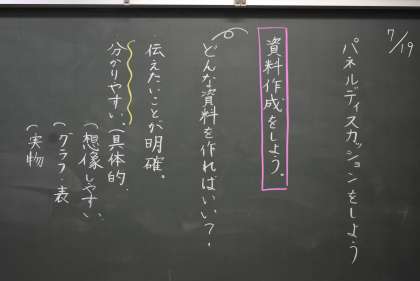 7/19
パネルディスカッションをしよう
資料作成をしよう。
どんな資料を作ればいい？
・伝えたいことが明確。
分かりやすい。(具体的.
(想像しやすい.
(グラフ・表
(実物